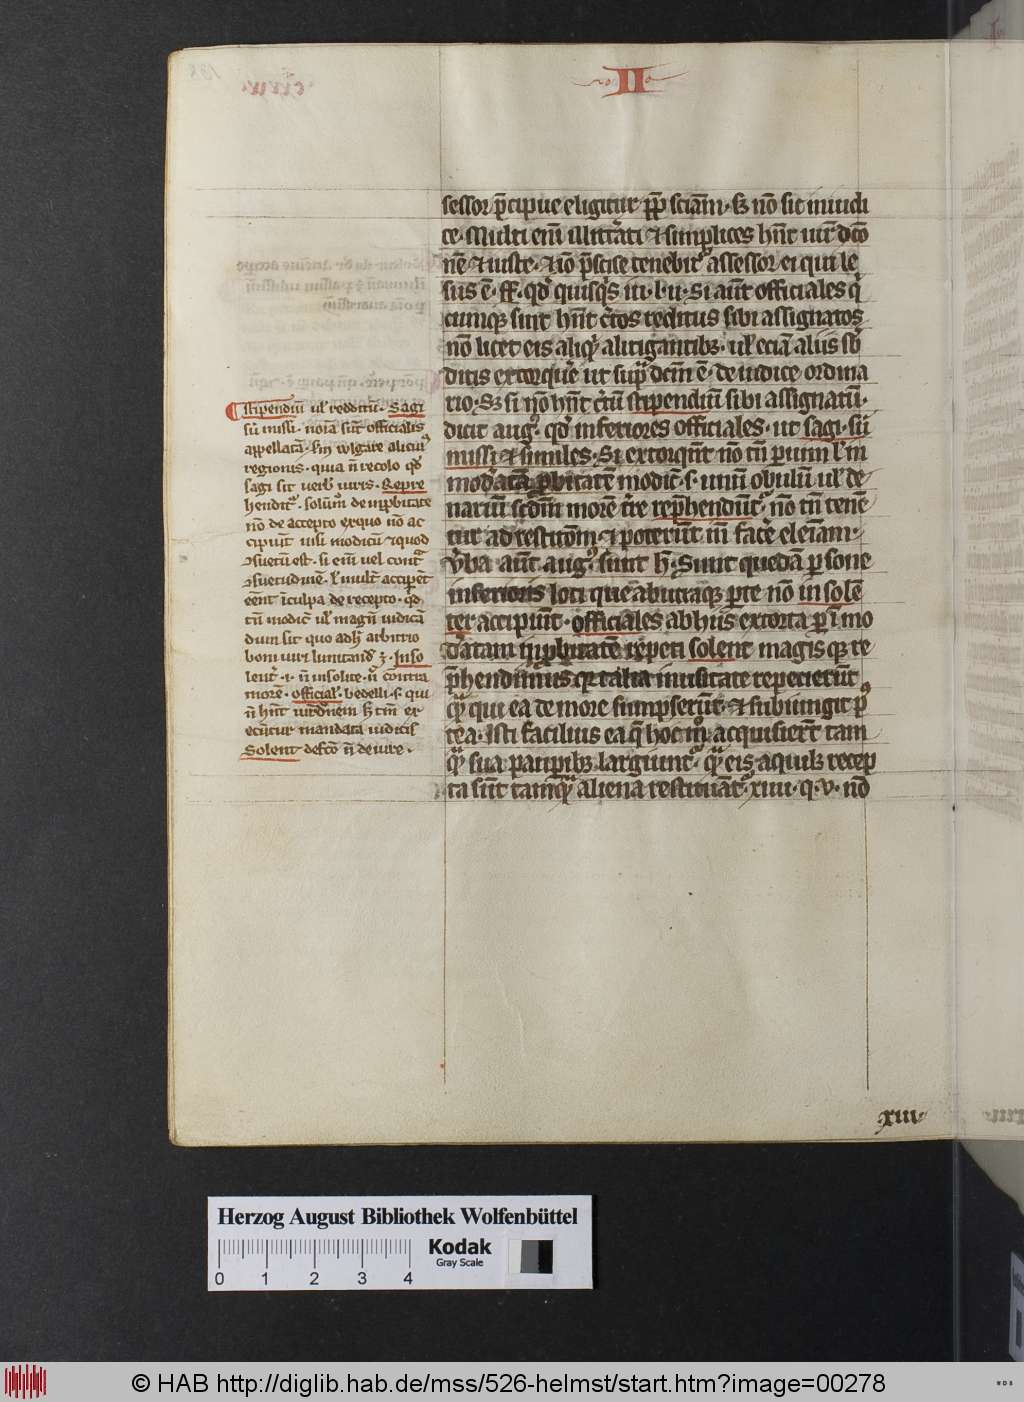 II
sessor p̄cipue eligitur ꝓpt̄ sciām · sꝫ nō sit in iudi
ce · Multi enī illitt̄ati ⁊ simplices hn̄t iur̄ dc̄o
nē ⁊ iuste · ⁊ iō p̄scise tenebit᷑ assessor ei qui le
sus ē · ff · qd̓ quisqꝫ iu · l · ii · Si aūt officiales q̓
cumqꝫ sint hn̄t c̄tos redditus sibi assignatos
nō licet eis aliqꝫ a litigantibꝫ · ul̓ eciā aliis sb̓
ditis extorquēr ut sup̄ dc̄m ē · de iudice ordina
rio · Sꝫ si nō hn̄t c̄tū stipendiū sibi assignatū ·
dicit aug᷒ qd̓ inferiores officiales · ut sagi · sū
missi ⁊ similes · Si extorq̄nt nō tn̄ per uim l̓ in
mod̓atā ꝓbitatē modic̄ · s · unū obulū ul̓ de
nariū scd̄m morē t̄re rep̄hendūt᷑ · nō tn̄ tenē
tur ad restitōm · ⁊ poterūt in̄ fac̄e eleīam ·
v̓ba aūt aug᷒ sunt h̄ · Sunt quedā personē
inferioris loci que ab utraqꝫ parte nō insolē
ter accipiūt · officiales ab hiis extorta per īmo
d̓atam inprobitatē repeti solent magis qꝫ re
p̄hendimus qꝛ talia inusitate repeterēt
qꝫ qui ea de more sumpserūt · ⁊ subiungit p᷒
tea · Isti facilius ea q̄ hoc mō acquisierūt tam
qꝫ sua pauperibꝫ largiunt᷑ · qꝫ eis a quibꝫ recep
ta sūt tamqꝫ aliena restituāt᷑ xiiii · q · v · nō
stipendiū ul̓ redditū · Sagi
sū missi · noīa sūt officialis
appellatā · sm̄ wlgare alicui᷒
regionis · quia n̄ recolo qd̓
sagi sit verbū iuris · Repre
hendit᷑ · solum̄ de inprobitate
nō de accepto ex quo nō ac
cipiūt nisi modicū ⁊ quod
ꝯsuetū est · si enī vel cont̄
ꝯsuetudinē · l̓ mult̄ acciperēt
eēnt ī culpa de recepto · qd̓
tn̄ modic̄ ul̓ magn̄ iudicā
dum sit quo adh᷑ arbitrio
boni viri limitand᷑ ꝫ · Inso
lent᷑ · i · n̄ insolite · n̄ contra
morē · official᷑ · bedelli · s · qui
n̄ hn̄t iurisdc̄nem sꝫ tm̄ ex
equūtur mandata iudicis
Solent de fc̄o n̄ de iure ·
xiii
Herzog August Bibliothek Wolfenbüttel
0 1 2 3 4
Kodak
Gray Scale
© HAB http://diglib.hab.de/mss/526-helmst/start.htm?image=00278